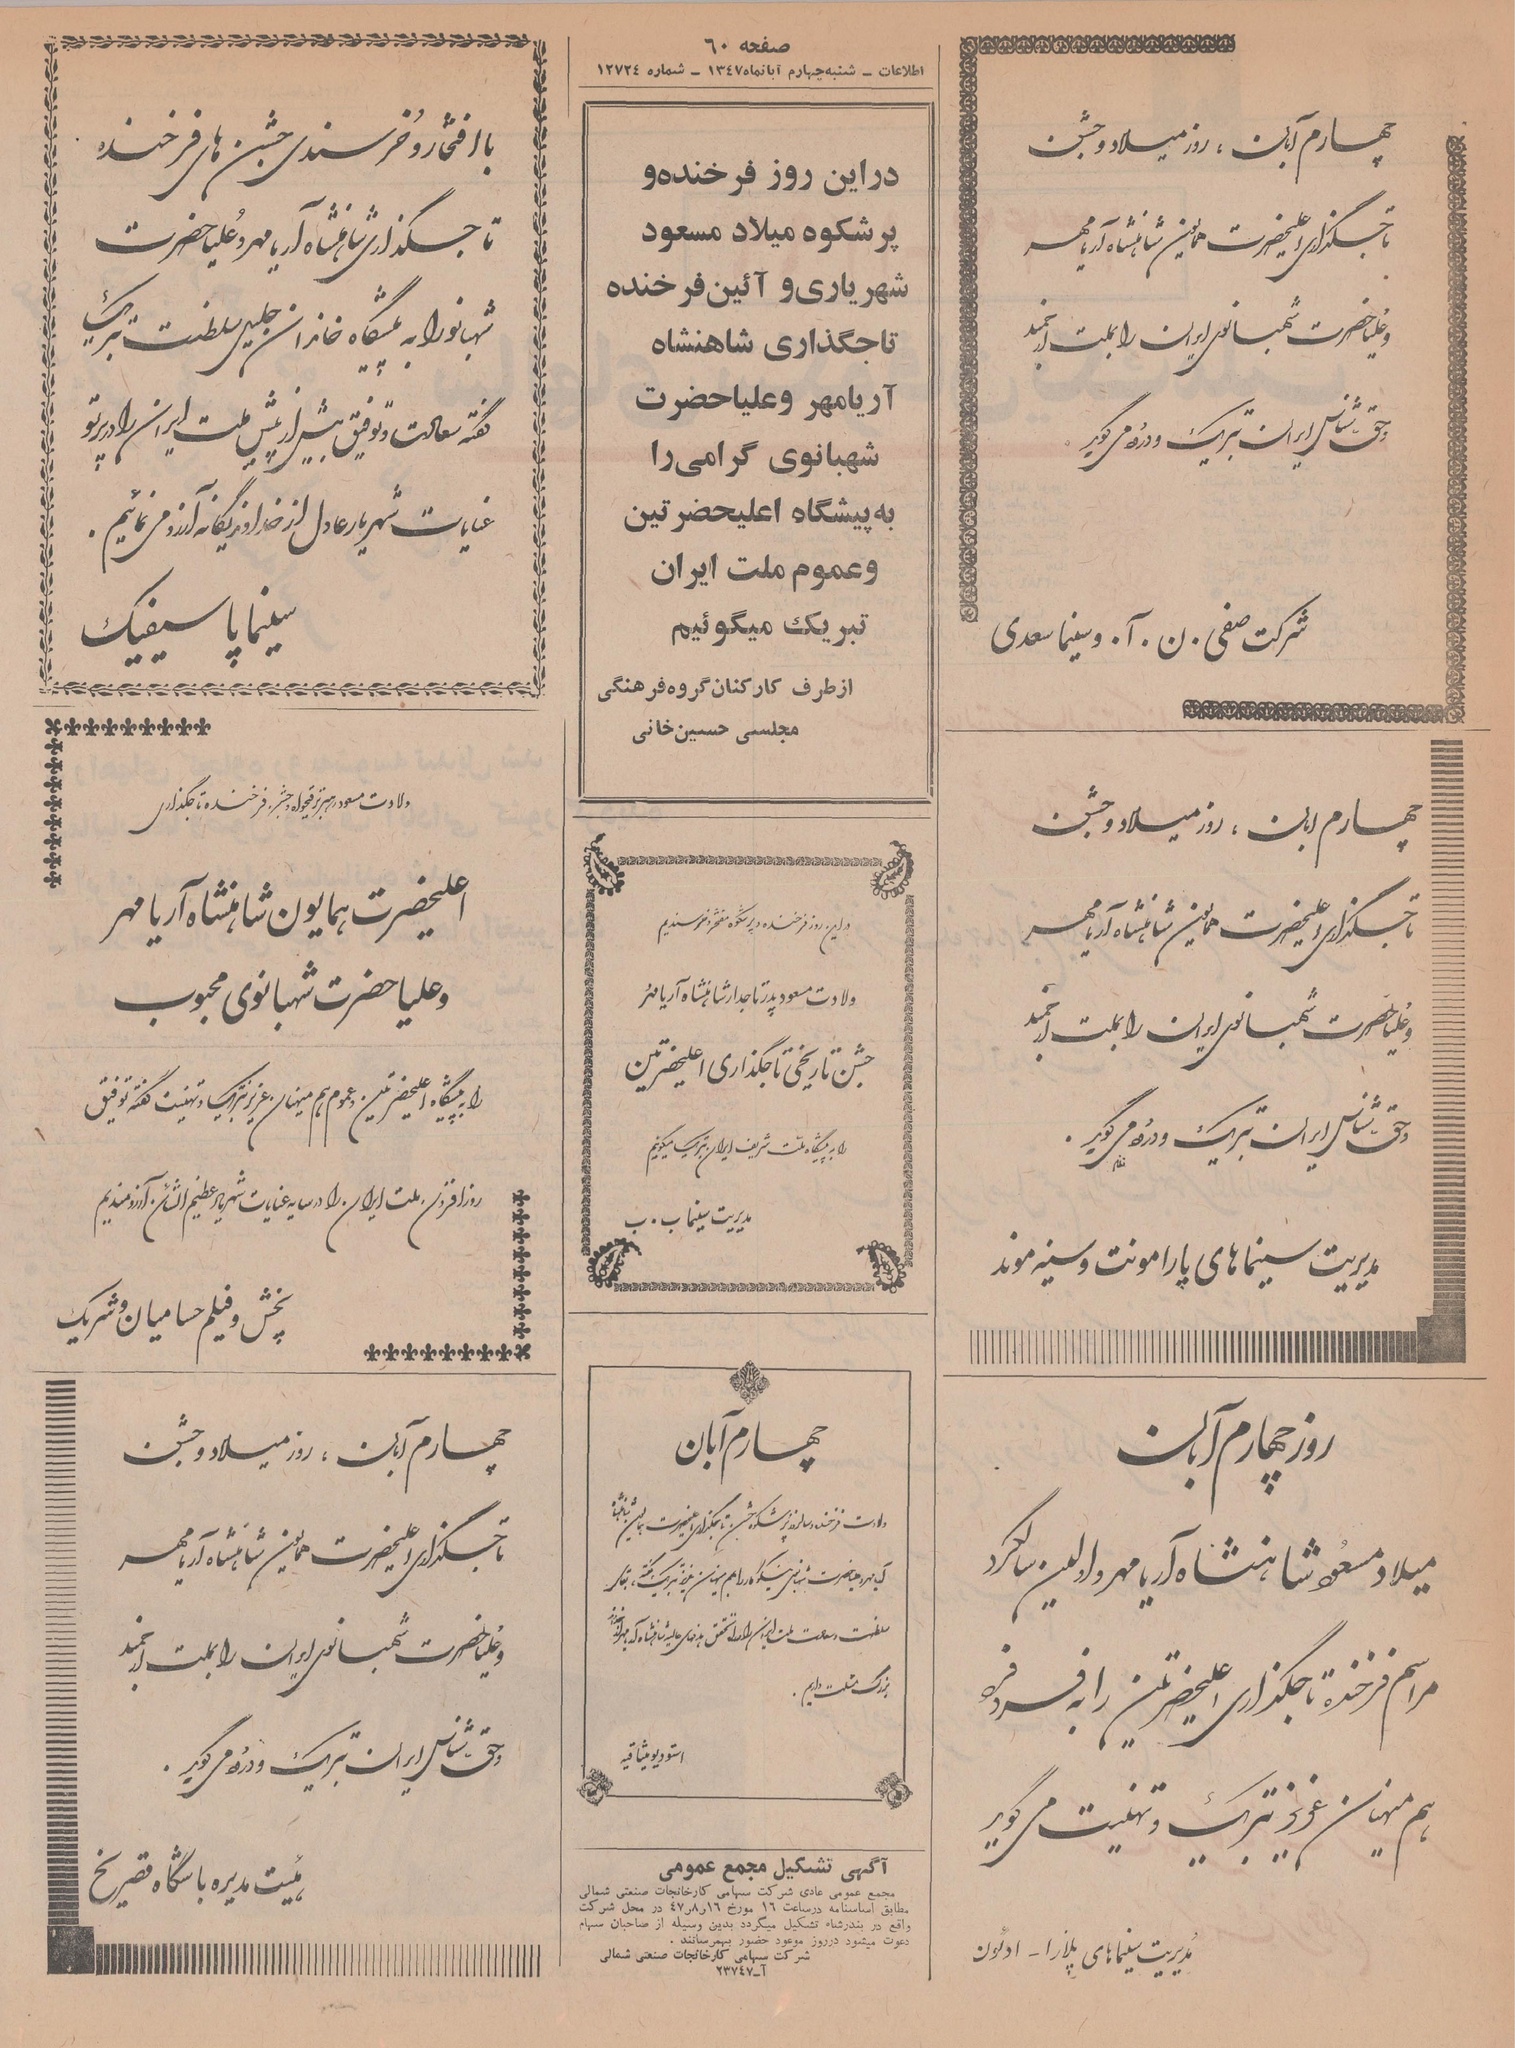 صفحه ۶۰
اطلاعات ـ شنبه چهارم آبانماه ۱۳۴۷ ـ شماره ۱۲۷۲۴
چهارم آبان ، روز میلاد و جشن
تاجگذاری اعلیحضرت همایون شاهنشاه آریامهر
و علیاحضرت شهبانوی ایران را بملت ارجمند
و حق شناس ایران تبریک و درود می گوید
شرکت صفی . ن . آ . و سینما سعدی
چهارم آبان ، روز میلاد و جشن
تاجگذاری اعلیحضرت همایون شاهنشاه آریامهر
و علیاحضرت شهبانوی ایران را بملت ارجمند
و حق شناس ایران تبریک و درود می گوید .
مدیریت سینماهای پارامونت و سینه موند
روز چهارم آبان
میلاد مسعود شاهنشاه آریامهر و اولین سالگرد
مراسم فرخنده تاجگذاری اعلیحضرتین را به فرد فرد
هم میهنان عزیز تبریک و تهنیت می گوید
مدیریت سینماهای پلازا ـ ادئون
در این روز فرخنده و
پرشکوه میلاد مسعود
شهریاری و آئین فرخنده
تاجگذاری شاهنشاه
آریامهر و علیاحضرت
شهبانوی گرامی را
به پیشگاه اعلیحضرتین
و عموم ملت ایران
تبریک میگوئیم
از طرف کارکنان گروه فرهنگی
مجلسی حسین خانی
در این روز فرخنده و پرشکوه مفتخر و خرسندیم
ولادت مسعود پدر تاجدار شاهنشاه آریامهر
جشن تاریخی تاجگذاری اعلیحضرتین
را به پیشگاه ملت شریف ایران تبریک میگوئیم
مدیریت سینما ب . ب
چهارم آبان
ولادت فرخنده و سالروز پرشکوه جشن تاجگذاری اعلیحضرت همایون شاهنشاه
آریامهر و علیاحضرت شهبانوی نیکوکار را بهم میهنان عزیز تبریک گفته ، بقای
سلطنت و سعادت ملت ایران را در تحقق هدفهای عالیه شاهنشاه آریامهر از خداوند
بزرگ مسئلت داریم .
استودیو میثاقیه
آگهی تشکیل مجمع عمومی
مجمع عمومی عادی شرکت سهامی کارخانجات صنعتی شمالی
مطابق اساسنامه در ساعت ۱۶ مورخ ۱۶ر۸ر۴۷ در محل شرکت
واقع در بندرشاه تشکیل میگردد بدین وسیله از صاحبان سهام
دعوت میشود در روز موعود حضور بهمرسانند .
شرکت سهامی کارخانجات صنعتی شمالی
آـ۲۳۷۴۷
با افتخار و خرسندی جشن های فرخنده
تاجگذاری شاهنشاه آریامهر و علیاحضرت
شهبانو را به پیشگاه خاندان جلیل سلطنت تبریک
گفته سعادت و توفیق بیش از پیش ملت ایران را در پرتو
عنایات شهریار عادل از خداوند یگانه آرزو می نمائیم .
سینما پاسیفیک
ولادت مسعود رهبر و جشن فرخنده تاجگذاری
اعلیحضرت همایون شاهنشاه آریامهر
و علیاحضرت شهبانوی محبوب
را به پیشگاه اعلیحضرتین و عموم هم میهنان عزیز تبریک و تهنیت گفته توفیق
روزافزون ملت ایران را در سایه عنایات شهریار عظیم الشان آرزومندیم
پخش و فیلم حسامیان و شریک
چهارم آبان ، روز میلاد و جشن
تاجگذاری اعلیحضرت همایون شاهنشاه آریامهر
و علیاحضرت شهبانوی ایران را بملت ارجمند
و حق شناس ایران تبریک و درود می گوید .
هیئت مدیره باشگاه قصر یخ